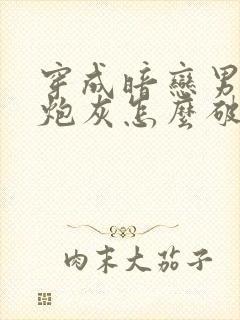 穿成暗戀男
炮灰怎麼破
肉末大茄子